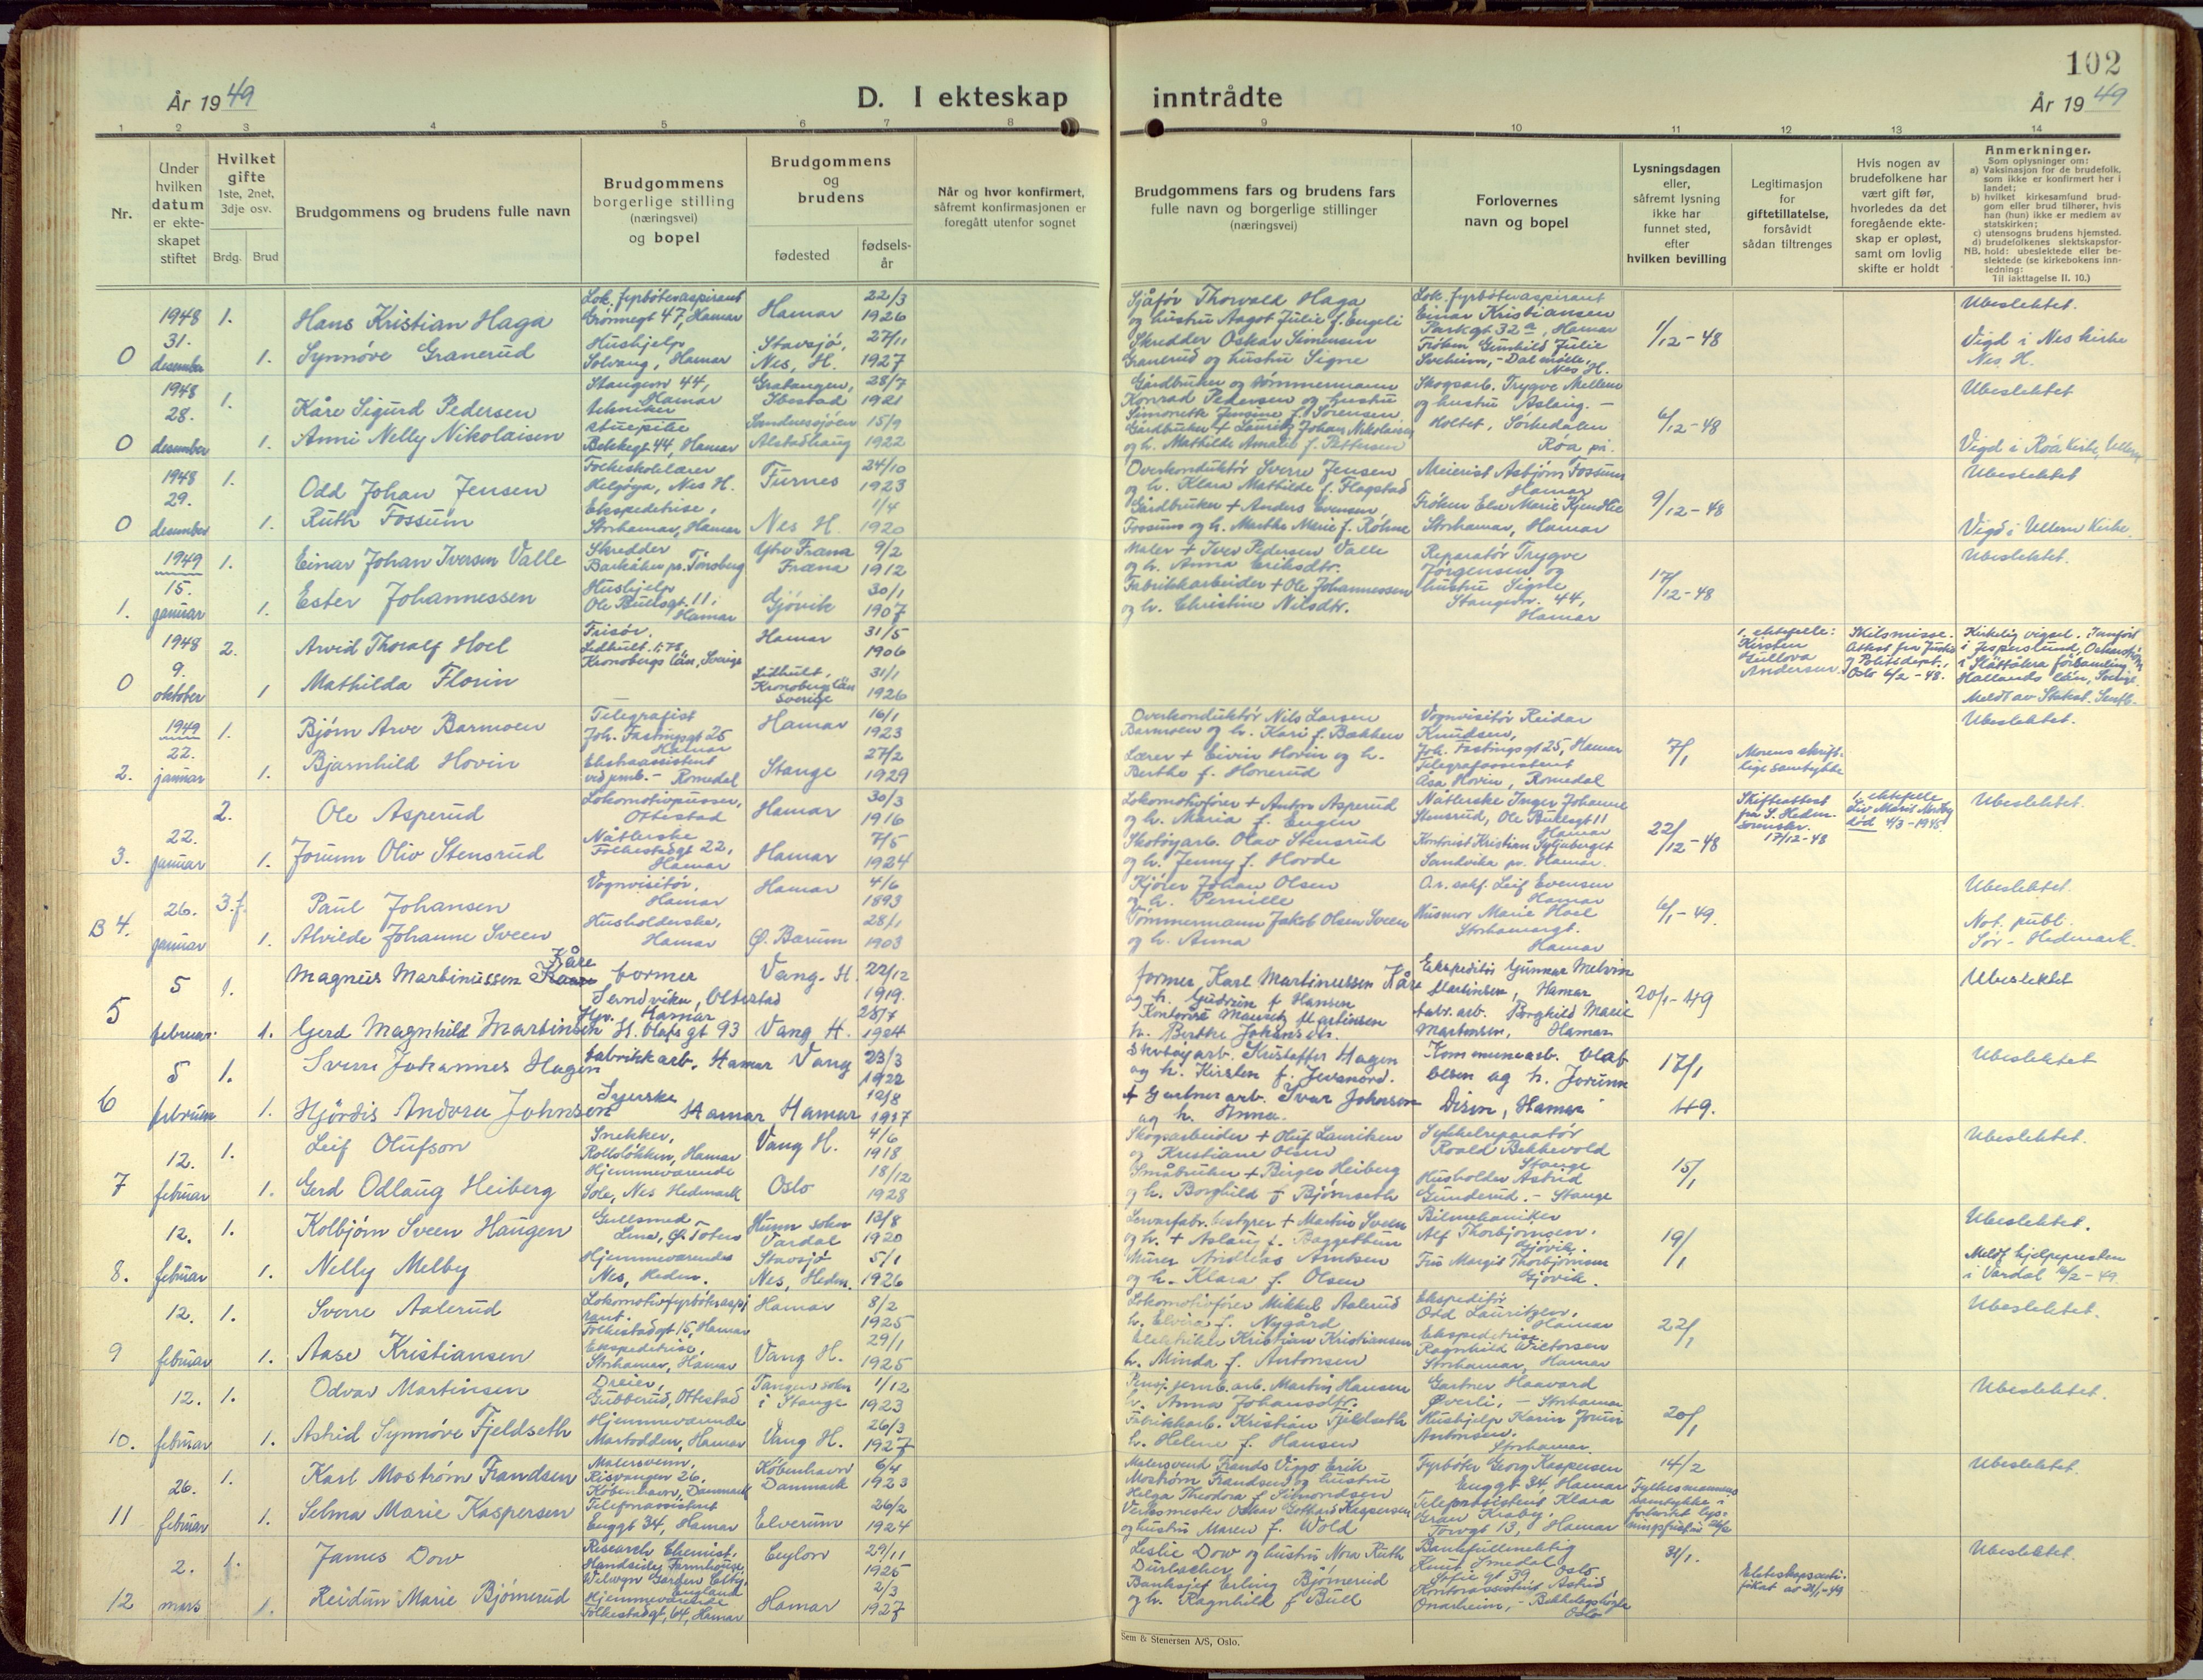 102
År 1949
D. I ekteskap inntrådte
År 1949
1 2 3 4 5 6 7 8 9 10 11 12 13 14
Nr.
Under hvilken datum er ekte-skapet stiftet
Hvilket gifte
1ste, 2net, 3dje osv.
Brdg. Brud
Brudgommens og brudens fulle navn
Brudgommens borgerlige stilling (næringsvei) og bopel
Brudgommens og brudens
fødested
fødsels-år
Når og hvor konfirmert, såfremt konfirmasjonen er foregått utenfor sognet
Brudgommens fars og brudens fars fulle navn og borgerlige stillinger (næringsvei)
Forlovernes navn og bopel
Lysningsdagen eller, såfremt lysning ikke har funnet sted, efter hvilken bevilling
Legitimasjon for giftetillatelse, forsåvidt sådan tiltrenges
Hvis nogen av brudefolkene har vært gift før, hvorledes da det foregående ekte-skap er opløst, samt om lovlig skifte er holdt
Anmerkninger.
Som oplysninger om:
a) Vaksinasjon for de brudefolk, som ikke er konfirmert her i landet;
b) hvilket kirkesamfund brud-gom eller brud tilhører, hvis han (hun) ikke er medlem av statskirken;
c) utensogns brudens hjemsted.
d) brudefolkenes slektskapsfor-hold: ubeslektede eller be-slektede (se kirkebokens inn-ledning:
NB. Til iakttagelse II. 10.)
0 1948 31. desember 1. Hans Kristian Haga
Lok. fyrbøteraspirant Grønnegt 47, Hamar
Hamar 22/3 1926
Sjåfør Thorvald Haga og hustru Aagot Julie f. Engeli
Lok. fyrbøteraspirant Einar Kristiansen Parkgt 32a, Hamar
1/12-48
Ubeslektet.
1. Synnøve Granerud
Hushjelp Solvang, Hamar
Stavsjø, Nes, H. 27/11 1927
Skredder Oskar Simensen Granerud og hustru Signe
Frøken Gunhild Julie Sveheim, - Dalsmølle, Nes H.
Vigd i Nes kirke Nes H.
0 1948 28. desember 1. Kåre Sigurd Pedersen
Stangevn 44, Hamar tekniker
Gratangen, Ibestad 28/7 1921
Gårdbruker og tømmermann Konrad Pedersen og hustru Simonette Jensine f. Sørensen
Skogsarb. Trygve Mellem og hustru Aslaug. - Holtet, Sørkedalen Røa pr.
6/12-48
Ubeslektet
1. Anni Nelly Nikolaisen
stuepike Bekkegt 44, Hamar
Sandnessjøen Alstadhaug 15/9 1922
Gårdbruker + Lauritz Johan Nikolaisen og h. Mathilde Amalie f. Pettersen
Vigd i Røa kirke, Ullern
0 1948 29. desember 1. Odd Johan Jensen
Folkeskolelærer Helgøya, Nes H.
Furnes 24/10 1923
Overkonduktør Sverre Jensen og h. Klara Mathilde f. Flagstad
Meierist Asbjørn Fossum Hamar
9/12-48
Ubeslektet
1. Ruth Fossum
Ekspeditrise, Storhamar, Hamar
Nes H. 1/4 1920
Gårdbruker + Anders Evensen Fossum og h. Marthe Marie f. Røhne
Frøken Else Marie Kjendlie Storhamar, Hamar
Vigd i Ullern Kirke.
1. 1949 15. januar 1. Einar Johan Iversen Valle
Skredder Barkåker pr. Tønsberg
Ytre Fræna Fræna 9/2 1912
Maler + Iver Pedersen Valle og h. Anna Eriksdtr.
Reparatør Trygve Jørgensen og hustru Signe Stangevn. 44, Hamar
17/12-48
Ubeslektet.
1. Ester Johannessen
Hushjelp Ole Bullsgt. 11, Hamar
Gjøvik 30/1 1907
Fabrikkarbeider + Ole Johannessen og h. Christine Nilsdtr.
0 1948 9. oktober 2. Arvid Thoralf Hoel
Frisør. Lidhult. Kronobergs län, Sverige
Hamar 31/5 1906
1. ektefelle: Kirsten Gullova Andersen.
Skilsmisse. Attest fra Justis og Politidept., Oslo 6/2-48.
Kirkelig vigsel. i Jesperslund, i Slättåkra församling Hallands län, Sverige. Meldt av Statist. Sentb.
1 Mathilda Florin
Lidhult, Kronobergs län Sverige 31/1 1926
2. 1949 22. januar 1. Bjørn Arve Barmoen
Telegrafist Joh. Fastingsgt 25 Hamar
Hamar 16/1 1923
Overkonduktør Nils Larsen Barmoen og h. Kari f. Bækken
Vognvisitør Reidar Knudsen, Joh. Fastingsgt 25, Hamar
7/1
Morens skrift-lige samtykke
Ubeslektet.
1. Bjarnhild Hovin
Ekstraassistent ved jernb. - Romedal
Stange 27/2 1929
Lærer + Eivin Hovin og h. Berthe f. Honerud
Telegrafassistent Åsa Hovin, Romedal
3. 22. januar 2. Ole Asperud
Lokomotivpusser, Ottestad
Hamar 30/3 1916
Lokomotivfører + Anton Asperud og h. Maria f. Eugen
Nåtlerske Inger Johanne Stensrud, Ole Bullsgt 11 Hamar
22/12-48
Skifteattest fra S. Hedm. sorenskr. 17/12-48
1. ektefelle Liv Marit død 4/3-1945.
Ubeslektet.
1. Jorunn Oliv Stensrud
Nåtlerske Folkestadgt 22, Hamar
Hamar 7/5 1924
Skotøyarb. Olav Stensrud og h. Jenny f. Hovde
Kontorist Kristian Sandvika pr. Hamar.
B 4. 26. januar 3. f. Paul Johansen
Vognvisitør, Hamar
Hamar 4/6 1893
Kjører Johan Olsen og h. Pernille
O.r. sakf. Leif Evensen Hamar
6/1-49.
Ubeslektet.
1. Alvilde Johanne Sveen
Husholderske, Hamar
Ø. Bærum 28/1 1903
Tømmermann Jakob Olsen Sveen og h. Anna
Husmor Marie Hoel Storhamargt. Hamar
Not. publ. Sør-Hedmark.
5 5 februar 1. Magnus Martinussen Kåre
former Sandvika, Ottestad
Vang. H. 22/12 1919.
former Karl Martinussen Kåre og h. Gudrun f Hansen
Ekspeditør Gunnar Melvin Martinsen, Hamar
20/1-49
Ubeslektet
1. Gerd Magnhild Martinsen
Hjv. Hamar St. Olafs gt 93
Vang H. 28/7 1924
Kontorist Martinsen h. Berthe Johansdtr.
fabr. arb. Borghild Marie Martinsen, Hamar
6 5 februar 1. Sverre Johannes Hagen
fabrikkarb. Hamar
Vang 23/3 1922
Skotøyarb. Kristoffer Hagen og h. Kirsten f. Jevanord.
Kommunearb. Olaf Olsen og h. Jorunn Disen, Hamar
17/1 49.
Ubeslektet
1. Hjördis Andora Johnsen
Syerske Hamar
Hamar 12/8 1917
+ Gartnerarb. Ivar Johnsen og h. Anna.
7 12. februar 1. Leif Olufson
Snekker, Rolløkken, Hamar
Vang H. 4/6 1918
Skogsarbeider + Oluf Lauritzen og Kristiane Olsen
Sykkelreparatør Roald Bekkevold Stange
15/1
Ubeslektet.
1. Gerd Odlaug Heiberg
Hjemmeværende Sole, Nes Hedmark
Oslo 18/12 1928
Småbruker + Birger Heiberg og h. Borghild f Bjørnseth
Husholder Astrid Gunderud. - Stange
8. 12. februar 1. Kolbjørn Sveen Haugen
Gullsmed Lena, Ø. Toten
Hunn sokn Vardal 13/8 1920
+ Martin Sveen og h. + Aslaug f. Baggethun
Bilmekaniker Alf Thorbjørnsen, Gjøvik.
19/1
Ubeslektet.
1. Nelly Melby
Hjemmeværende Nes, Hedm.
Stavsjø Nes, Hedm. 5/1 1926
Murer Andreas Arntsen og h. Klara f. Olsen
Fru Margit Thorbjørnsen Gjøvik.
Meldt hjelpepresten i Vardal 16/2-49.
9 12. februar 1. Sverre Aalerud
Lokomotivfyrbøteraspirant. Folkestadgt 15, Hamar
Hamar 8/2 1925
Lokomotivfører Mikkel Aalerud h. Elvira f. Nygård
Ekspeditør Odd Lauritzen, Hamar
22/1
Ubeslektet.
1. Aase Kristiansen
Ekspeditrise, Storhamar, Hamar
Vang H. 29/1 1925
Elektriker Kristian Kristiansen h. Minda f. Antonsen
Ekspeditrise Ragnhild Wictorsen Storhamar, Hamar
10. 12. februar 1. Odvar Martinsen
Dreier, Gubberud, Ottestad
Tangen sokn i Stange 1/12 1923
Pensj. jernb. arb. Martin Hansen h. Anna Johansdtr.
Gartner Haavard Øverli, - Storhamar
20/1
Ubeslektet.
1. Astrid Synnøve Fjeldseth
Hjemmeværende Martodden, Hamar
Vang H. 26/3 1927
Fabrikkarb. Kristian Fjeldseth h. Helene f. Hansen
Hushjelp Karin Antonsen. Storhamar.
11 26. februar 1. Karl Mostrøm Frandsen
Malersvenn, Risvangen 26, København, Danmark
København Danmark 6/4 1923
Malersvend Frands Viggo Erik Mostrøm Frandsen og hustru Helga Theodora f. Simondsen
Fyrbøter Georg Kaspersen Enggt 34, Hamar
14/2 Fylkesmannens samtykke i forkortet lys-ningsfrist
Ubeslektet.
1. Selma Marie Kaspersen
Telefonassistent Enggt 34, Hamar
Elverum 26/2 1924
Verksmester Oskar Gotthard Kaspersen og hustru Maren f. Wold
Klara Gran Kraby, Torvgt 13, Hamar
12 2. mars 1. James Dow
Research Chemist, Handside, Farmhouse, Welwyn Garden City, England
Ceylon 29/11 1925
Leslie Dow og hustru Nora Ruth Durlacher
Bankfullmektig Knut Smedal Sofie gt 39 Oslo
31/1.
Ekteskapsserti-fikat av 31/1-49
Ubeslektet.
1. Reidun Marie Bjørnerud
Hjemmeværende Folkestadgt, 64, Hamar
Hamar 2/3 1927
Banksjef Erling Bjørnerud og h. Ragnhild f Bull
Kontorassistent Astrid Onarheim, - Bekkelagshøgda Oslo
Sem & Stenersen A/S, Oslo.